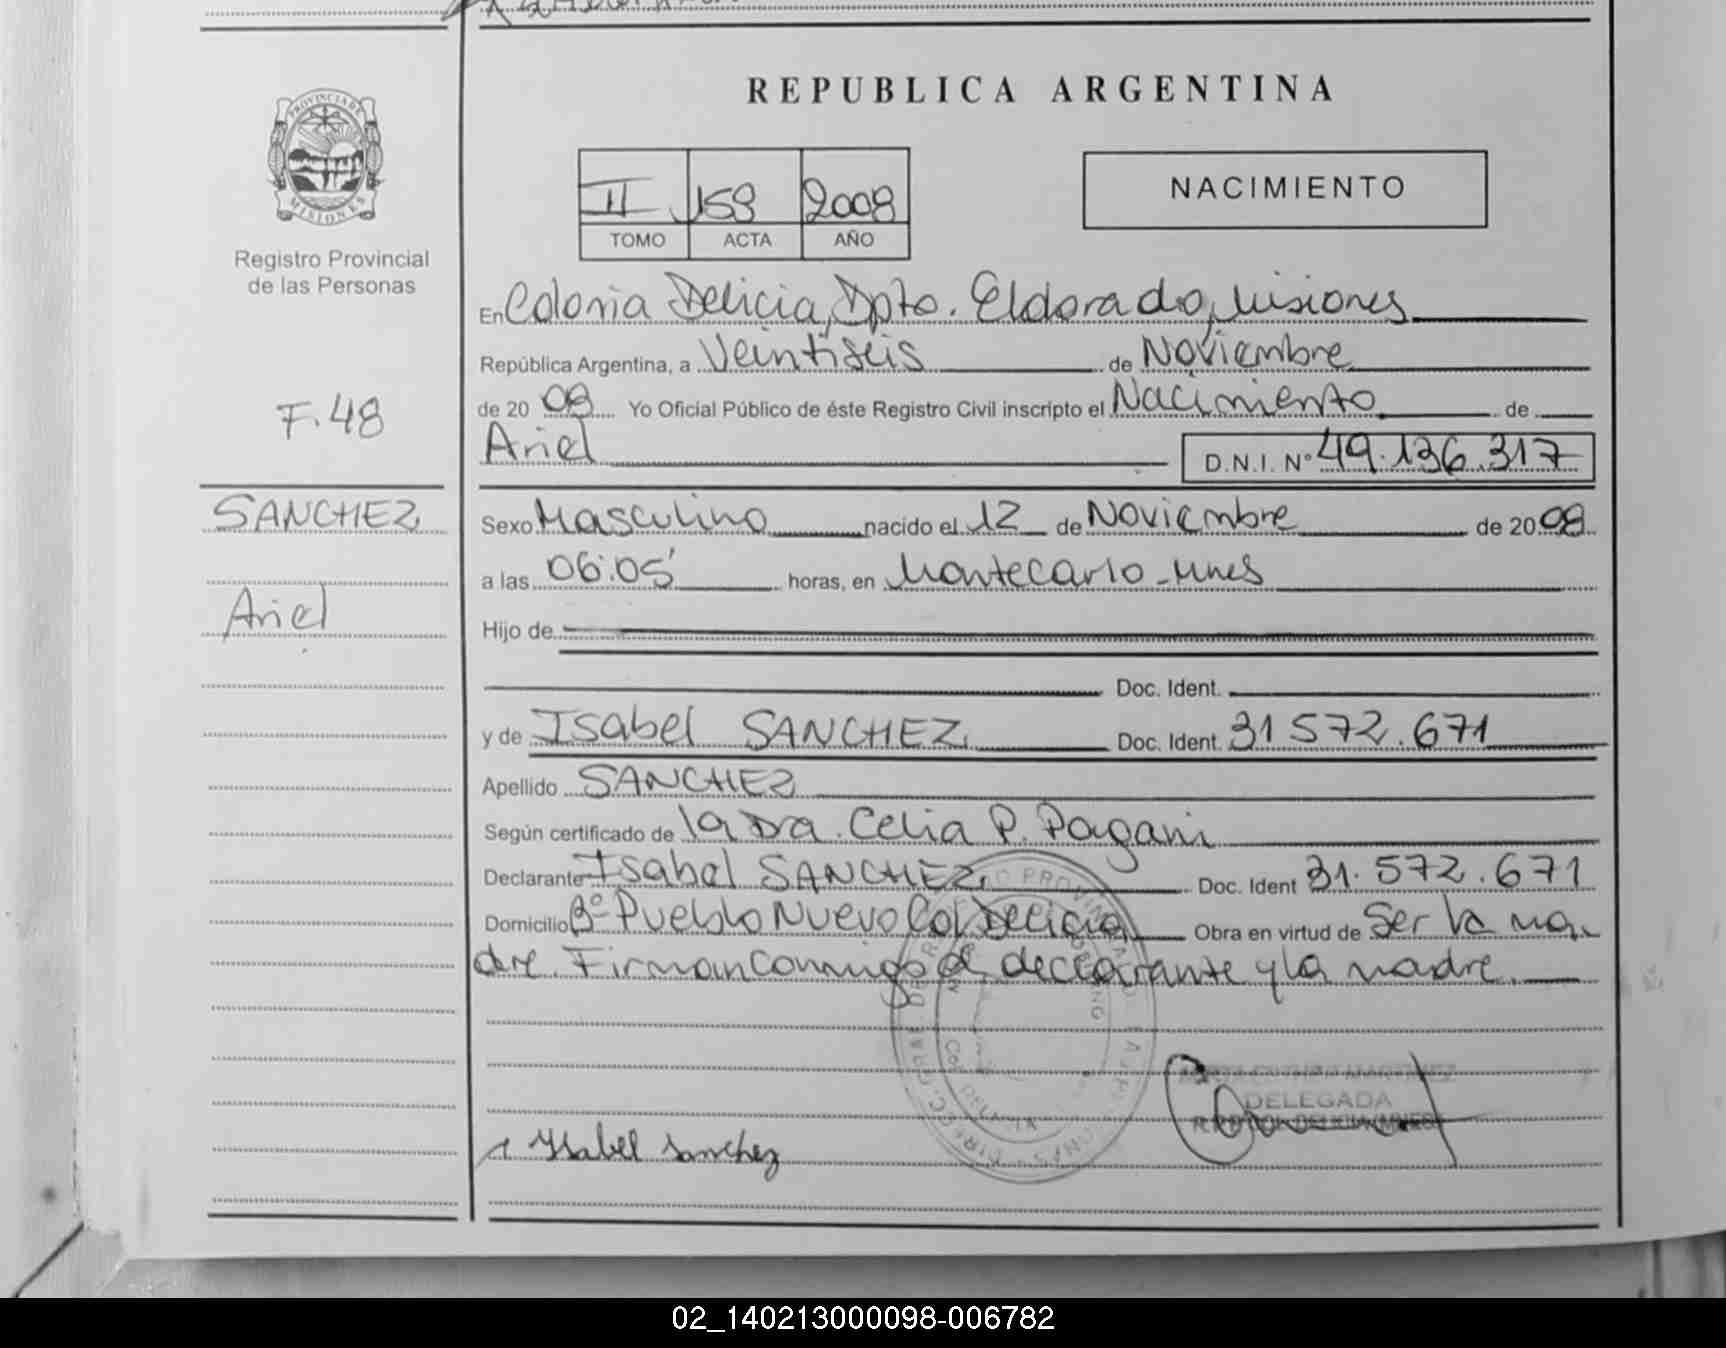 REPUBLICA ARGENTINA
PROVINCIA DE
MISIONES
Registro Provincial
de las Personas
II 159 2008
TOMO ACTA AÑO
NACIMIENTO
En Colonia Delicia, Dpto. Eldorado, Misiones
República Argentina, a Veintiseis de Noviembre
de 20 08 Yo Oficial Público de éste Registro Civil inscripto el Nacimiento de
Ariel D.N.I. Nº 49.136.317
F.48
SANCHEZ
Ariel
Sexo Masculino nacido el 12 de Noviembre de 20 08
a las 06:05' horas, en Montecarlo - Mnes
Hijo de
Doc. Ident.
y de Isabel SANCHEZ Doc. Ident. 31 572.671
Apellido SANCHEZ
Según certificado de la Dra. Celia P. Pagani
Declarante Isabel SANCHEZ Doc. Ident 31.572.671
Domicilio Bº Pueblo Nuevo Col Delicia Obra en virtud de Ser la ma-
dre. Firman conmigo el declarante y la madre.
DELEGADA
Isabel Sanchez
02_140213000098-006782